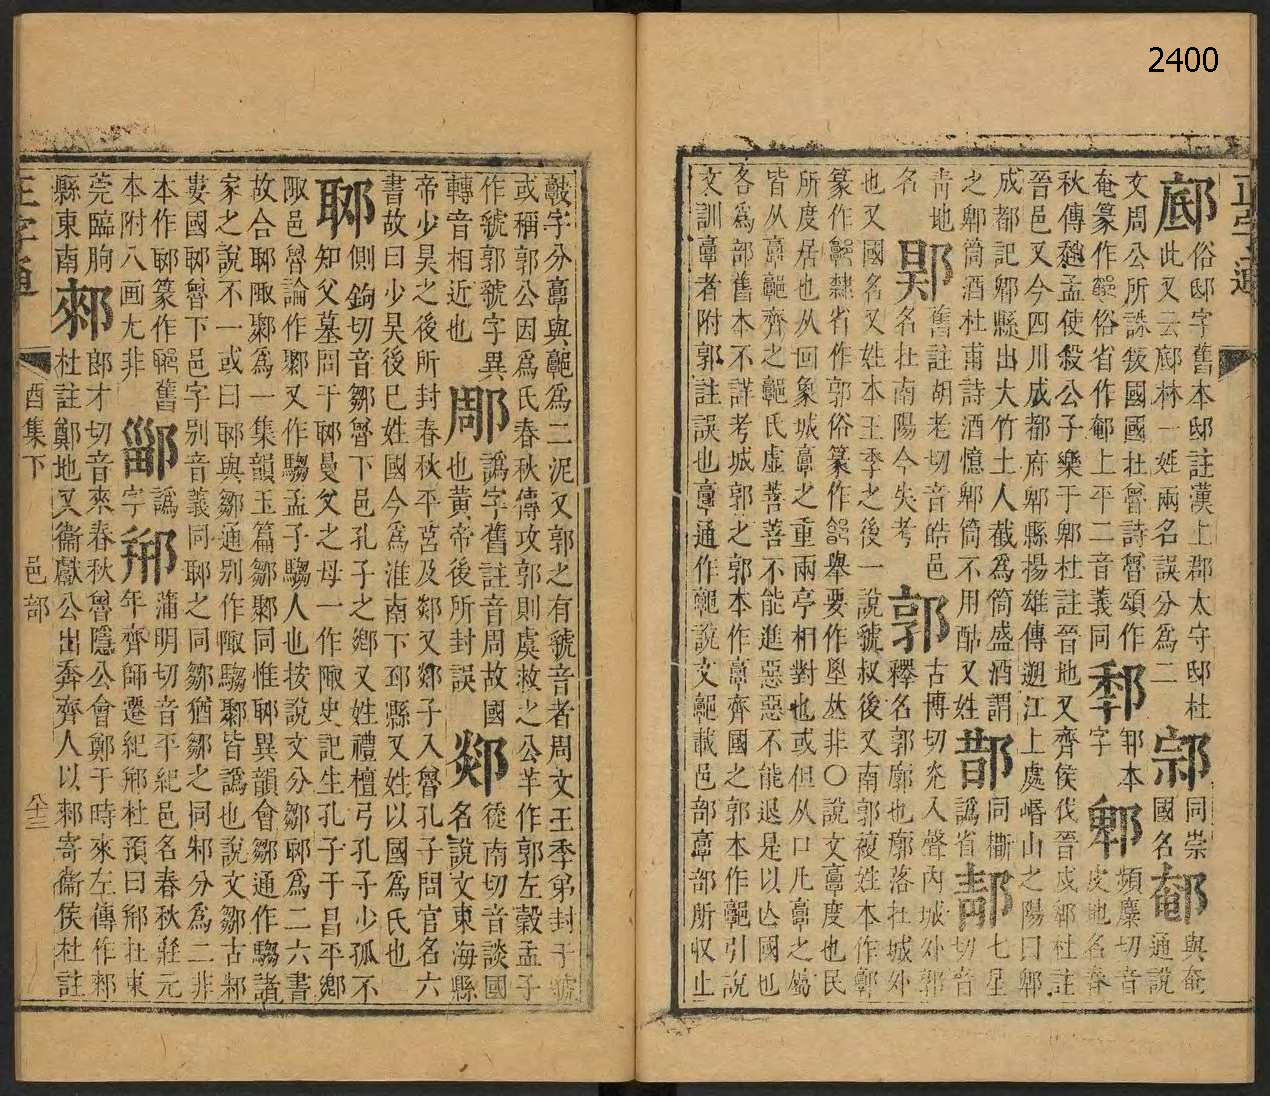 2400
正字通
䣌俗邸字舊本邸註漢上郡太守邸杜
此又云䣌林一姓兩名誤分爲二
𨛱同崇國名
䣍與奄通說
文周公所誅
國國在魯詩魯頌作
奄篆作
俗省作䣍上平二音義同
字
郫頻麋切音皮地名春
秋傳趙孟使殺公子樂于郫杜註晉地又齊侯伐晉戍郫杜註
晉邑又今四川成都府郫縣揚雄傳遡江上處崏山之陽曰郫
成都記郫縣出大竹土人截爲筒盛酒謂
之郫筒酒杜甫詩酒憶郫筒不用酤又姓
同
譌省
郬七星切音
靑地
舊註胡老切音皓邑
名在南陽今失考
郭古博切光入聲內城外郭
釋名郭廓也廓落在城外
也又國名又姓本王季之後一說虢叔後又南郭複姓本作𩫏
篆作
隸省作郭俗篆作
舉要作
𡘋非〇說文𩫖度也民
所度居也从回象城𩫖之重兩亭相對也或但从口凡𩫖之屬
皆从𩫖𩫏齊之𩫏氏虛善善不能進惡惡不能退是以亾國也
各爲部舊本不詳考城郭之郭本作𩫖齊國之郭本作𩫏引說
文訓𩫖者附郭註誤也𩫖通作𩫏說文𩫏載邑部𩫖部所收止
𣤶字分𩫖與𩫏爲二泥又郭之有虢音者周文王季弟封于虢
或稱郭公因爲氏春秋傳攻郭則虞救之公羊作郭左穀孟子
作虢郭虢字異
轉音相近也
䣋譌字舊註音周故國
也黃帝後所封誤
郯徒南切音談國
名說文東海縣
帝少昊之後所封春秋平莒及郯又郯子入魯孔子問官名六
書故曰少昊後已姓國今爲淮南下邳縣又姓以國爲氏也
郰側鉤切音鄒魯下邑孔子之鄕又姓禮檀弓孔子少孤不
知父墓問于郰曼父之母一作陬史記生孔子于昌平鄕
陬邑魯論作鄹又作騶孟子騶人也按說文分鄒郰爲二六書
故合郰陬鄹爲一集韻玉篇鄒鄹同惟郰異韻會鄒通作騶諸
家之說不一或曰郰與鄒通別作陬騶鄹皆譌也說文鄒古邾
婁國郰魯下邑字別音義同郰之同鄒猶鄒之同邾分爲二非
本作郰篆作
舊
本附八画尢非
𨞪譌
字
郱蒲明切音平紀邑名春秋莊元
年齊師遷紀郱杜預曰郱在東
莞臨朐
縣東南
郲郎才切音來春秋魯隱公會鄭于時來左傳作郲
杜註鄭地又衞獻公出奔齊人以郲寄衞侯杜註
正字通
酉集下
邑部
八十三